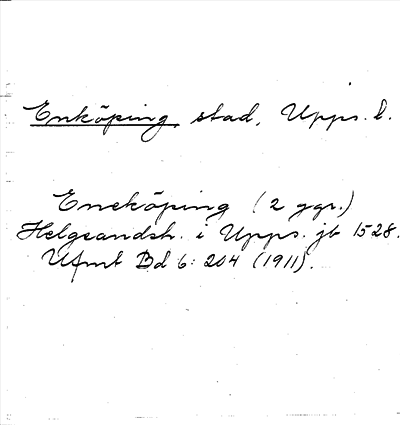 Enköping, stad, Upps. l.
Eneköping (2 ggr.)
Helgeandsh. i Upps. jb 1528.
Ufmt Bd 6: 204 (1911).